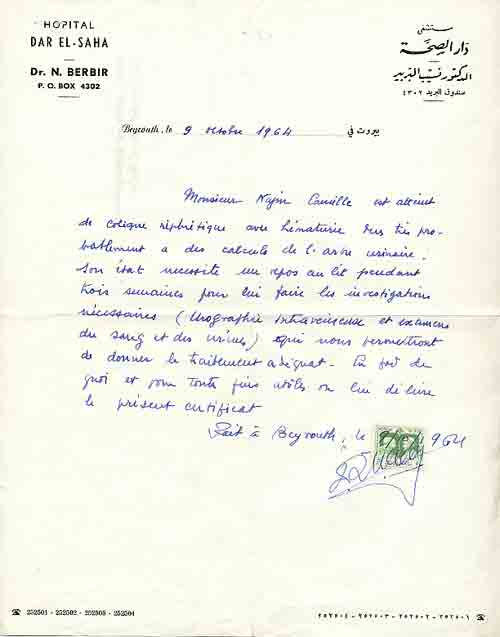 HOPITAL
DAR EL-SAHA
Dr. N. BERBIR
P. O. BOX 4302
مستشفى
دار الصحة
الدكتور نسيب البربير
صندوق البريد ٤٣٠٢
Beyrouth, le 9 octobre 1964 بيروت في
Monsieur Najm Camille est atteint
de colique néphrétique avec hématurie dus très pro-
bablement a des calculs de l'arbre urinaire.
Son état necessite un repos au lit pendant
trois semaines pour lui faire les investigations
nécessaires (Urographie intraveineuse et examens
du sang et des urines) qui nous permettront
de donner le traitement adéquat. En foi de
quoi et pour toute fins utiles on lui delivre
le présent certificat
Fait à Beyrouth, le 9 1964
☎ 252501 - 252502 - 252503 - 252504
٢٥٢٥٠٤ - ٢٥٢٥٠٣ - ٢٥٢٥٠٢ - ٢٥٢٥٠١ ☎